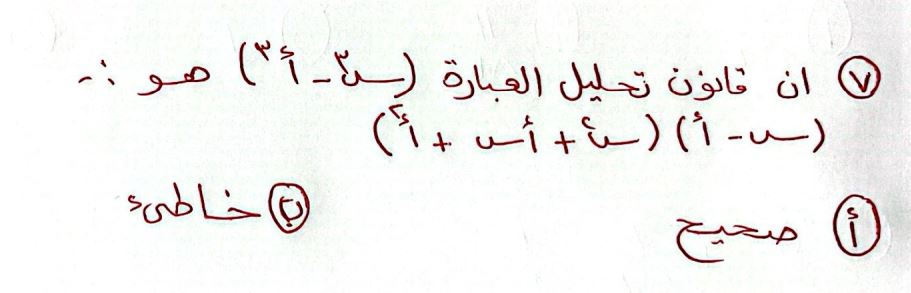 ٧ ان قانون تحليل العبارة (س٣ - أ٣) هو :-
(س - أ) (س٢ + أس + أ٢)
أ صحيح ب خاطىء